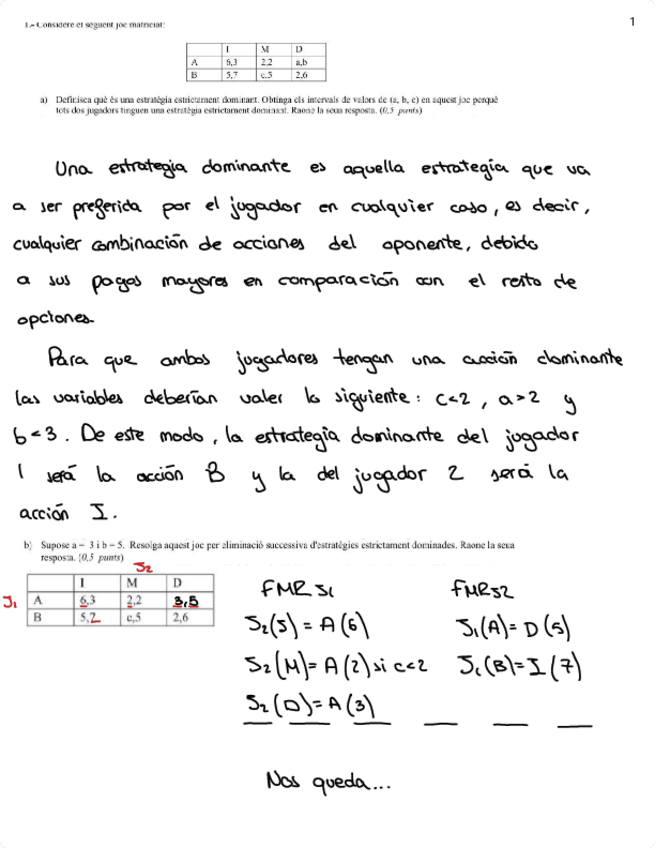 1
1.- Considere el següent joc matricial:
I M D
A 6,3 2,2 a,b
B 5,7 c,5 2,6
a) Definisca què és una estratègia estrictament dominant. Obtinga els intervals de valors de (a, b, c) en aquest joc perquè
tots dos jugadors tinguen una estratègia estrictament dominant. Raone la seua resposta. (0,5 punts)
Una estrategia dominante es aquella estrategia que va
a ser preferida por el jugador en cualquier caso, es decir,
cualquier combinación de acciones del oponente, debido
a sus pagos mayores en comparación con el resto de
opciones.
Para que ambos jugadores tengan una acción dominante
las variables deberían valer lo siguiente: c<2, a>2 y
b<3. De este modo, la estrategia dominante del jugador
1 será la acción B y la del jugador 2 será la
acción I.
b) Supose a = 3 i b = 5. Resolga aquest joc per eliminació successiva d'estratègies estrictament dominades. Raone la seua
resposta. (0,5 punts)
J2
I M D
J1 A 6,3 2,2 3,5
B 5,7 c,5 2,6
FMR J1 FMRJ2
J2(I) = A(6) J1(A)= D(5)
J2(M)= A(2) si c<2 J1(B)= I(7)
J2(D)= A(3)
Nos queda...